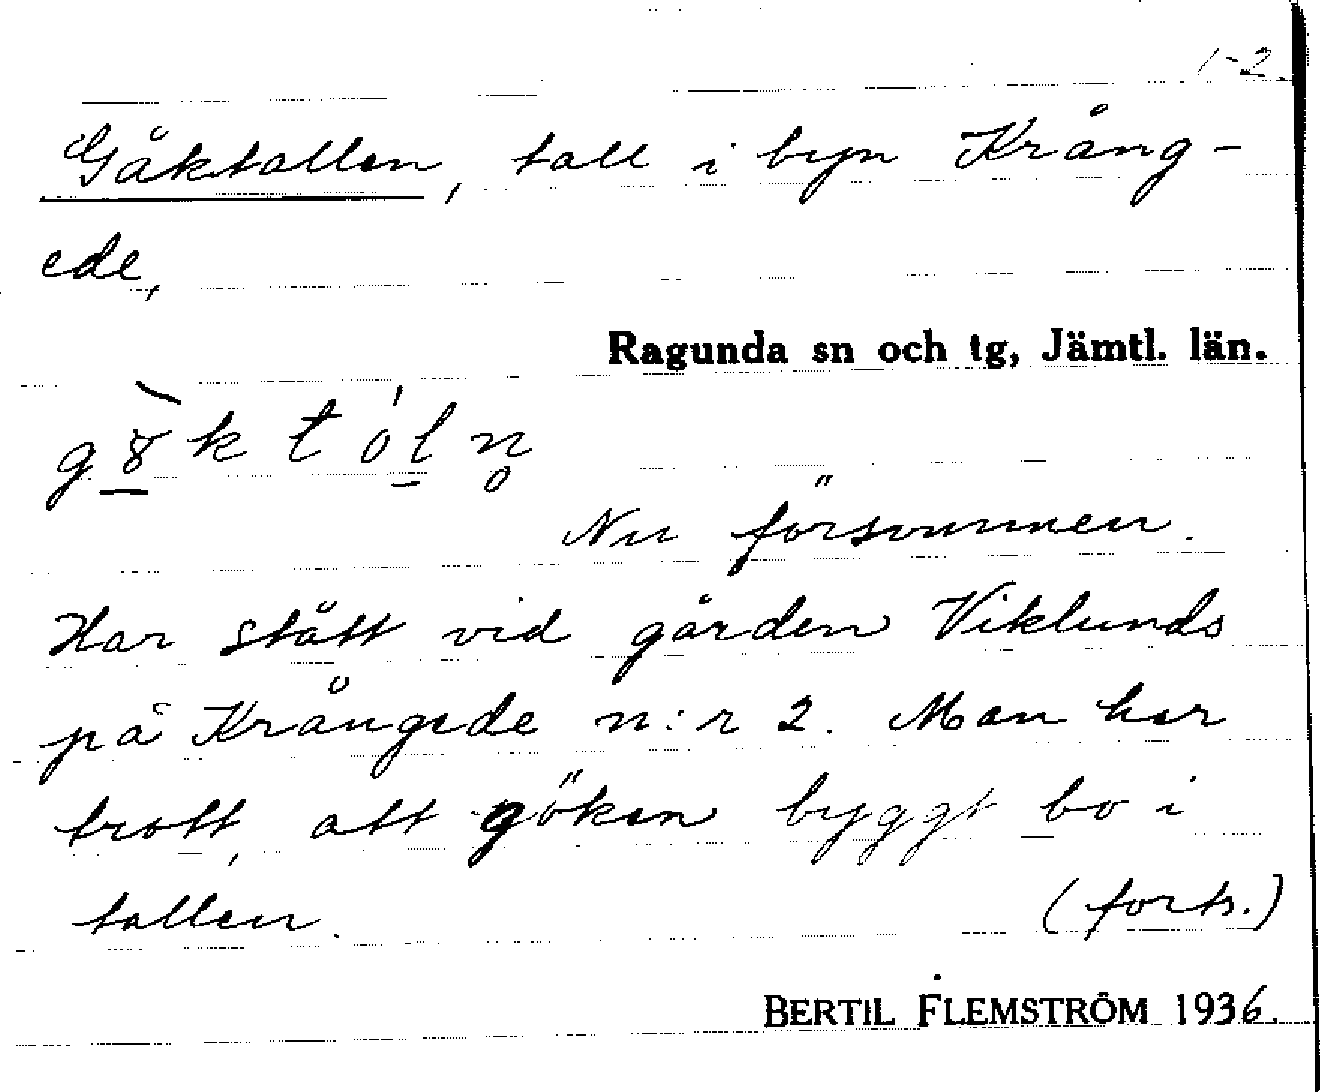 1-2.
Gåktallen, tall i byn Krång-
ede,
Ragunda sn och tg, Jämtl. län.
Nu försvunnen.
Har stått vid gården Viklunds
på Krångede n:r 2. Man har
trott, att göken byggt bo i
tallen. (forts.)
BERTIL FLEMSTRÖM 1936.